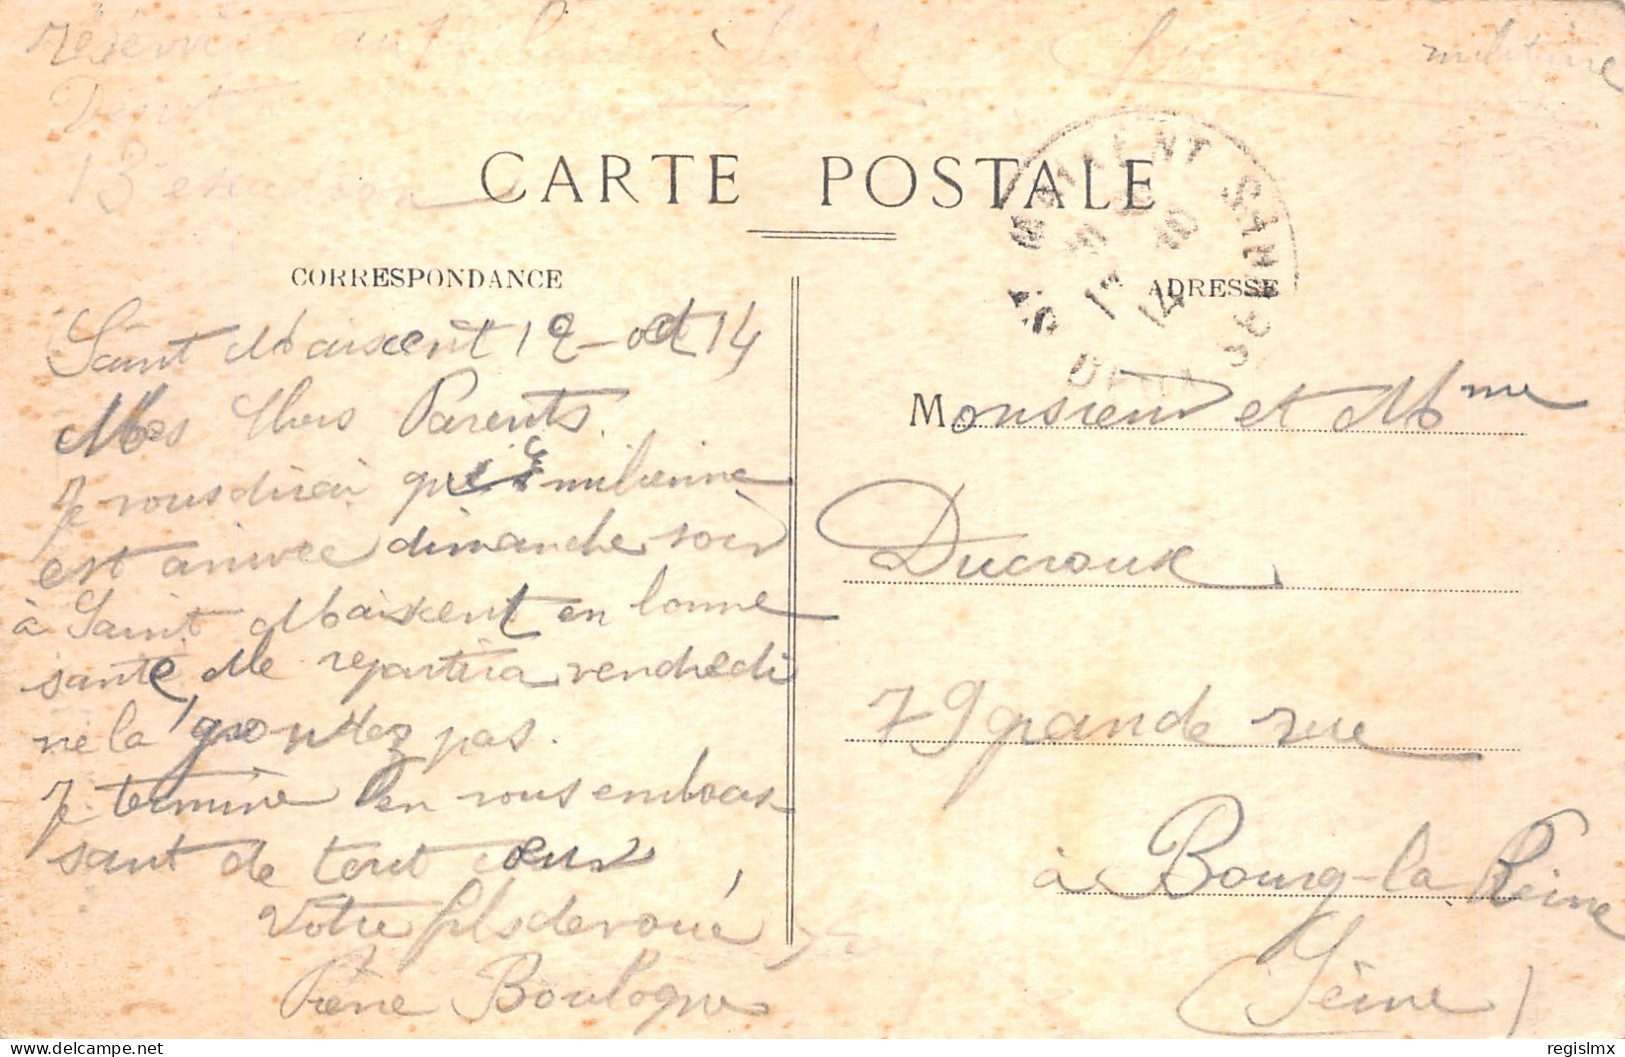 réserviste au
militaire
13 escadron
CARTE POSTALE
CORRESPONDANCE
Saint Maixent 12-oct 14
Mes Chers Parents
Je vous dirai que Emilienne
est arrivée dimanche soir
à Saint Maixent en bonne
santé, elle repartira vendredi
ne la grondez pas.
Je termine en vous embras
sant de tout cœur
Votre fils dévoué
Réné Boulogne
ST MAIXENT
10
14
ADRESSE
Monsieur et Mme
Ducroux
79 grande rue
à Bourg-la Reine
(Seine)
https://www.delcampe.net
regislmx